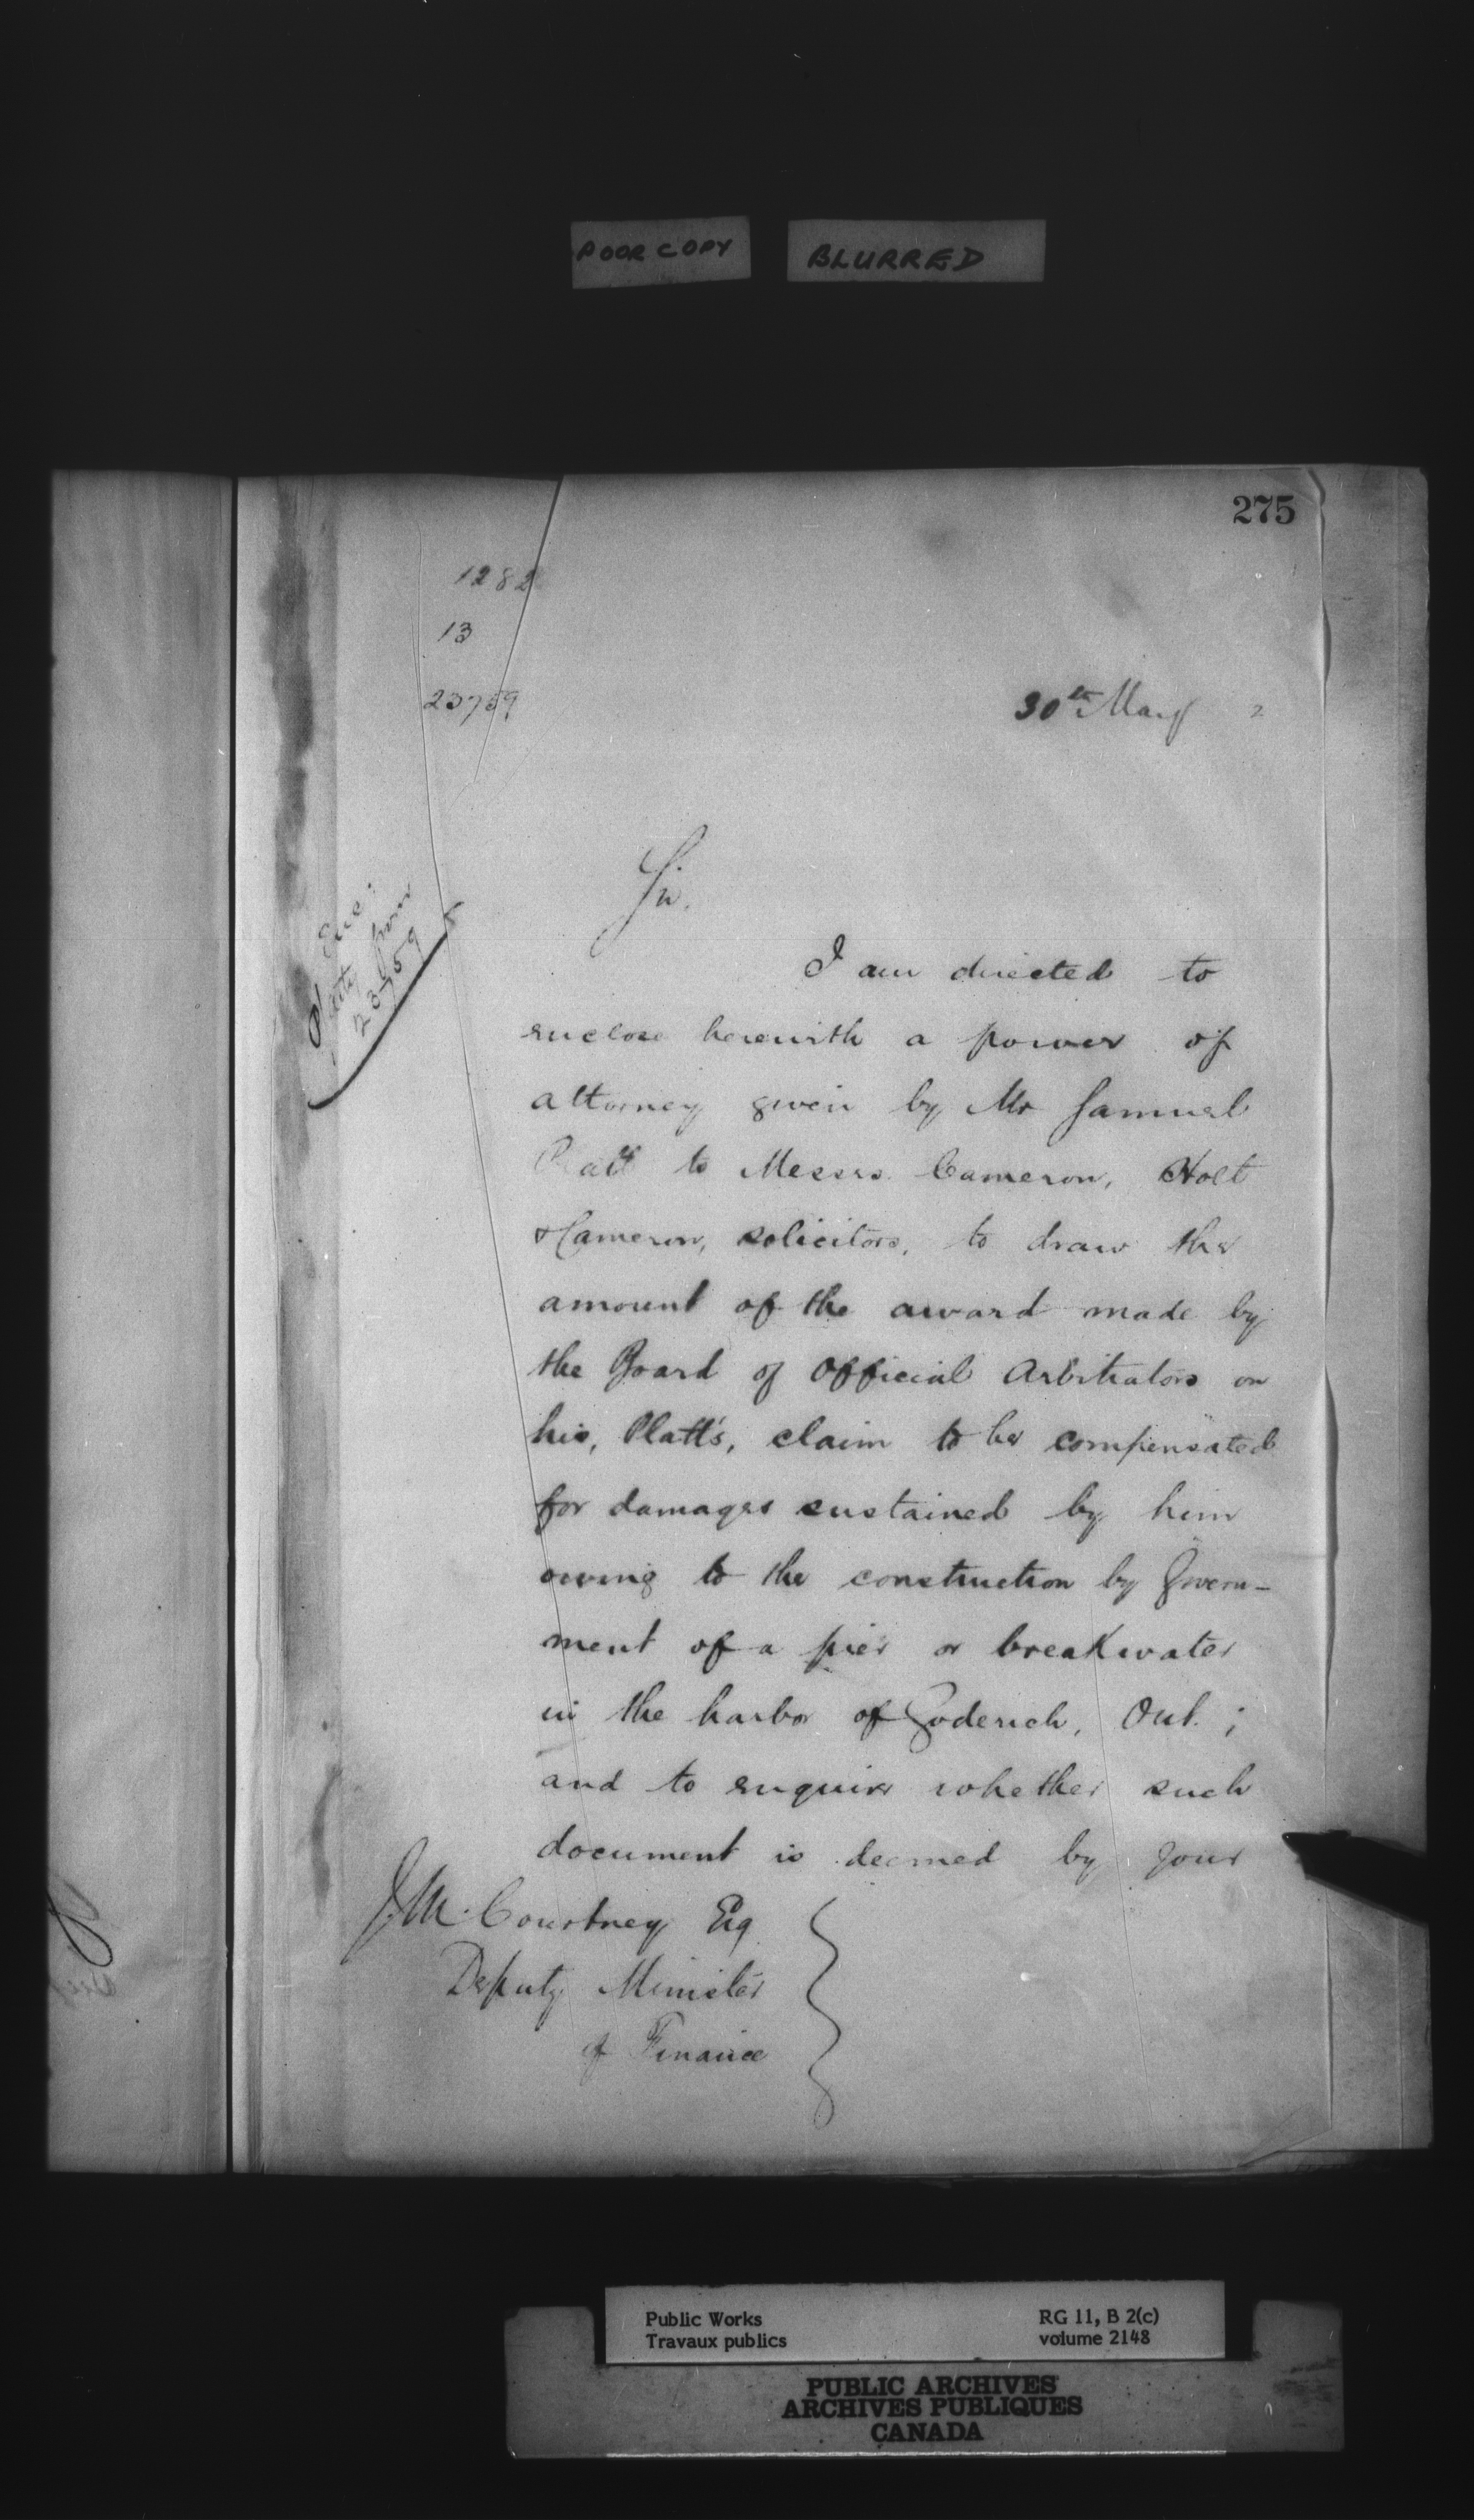 POOR COPY BLURRED
275
1282
13
23759
30th May 2
Enc:
Platt's power
23759
Sir.
I am directed to
enclose herewith a power of
attorney given by Mr Samuel
Platt to Messrs. Cameron, Holt
& Cameron, solicitors, to draw the
amount of the award made by
the Board of Official Arbitrators on
his, Platt's, claim to be compensated
for damages sustained by him
owing to the construction by Govern-
ment of a pier or breakwater
in the harbor of Goderich, Ont. ;
and to enquire whether such
document is deemed by your
J. M. Courtney Esq
Deputy Minister
of Finance
Public Works RG 11, B 2(c)
Travaux publics volume 2148
PUBLIC ARCHIVES
ARCHIVES PUBLIQUES
CANADA